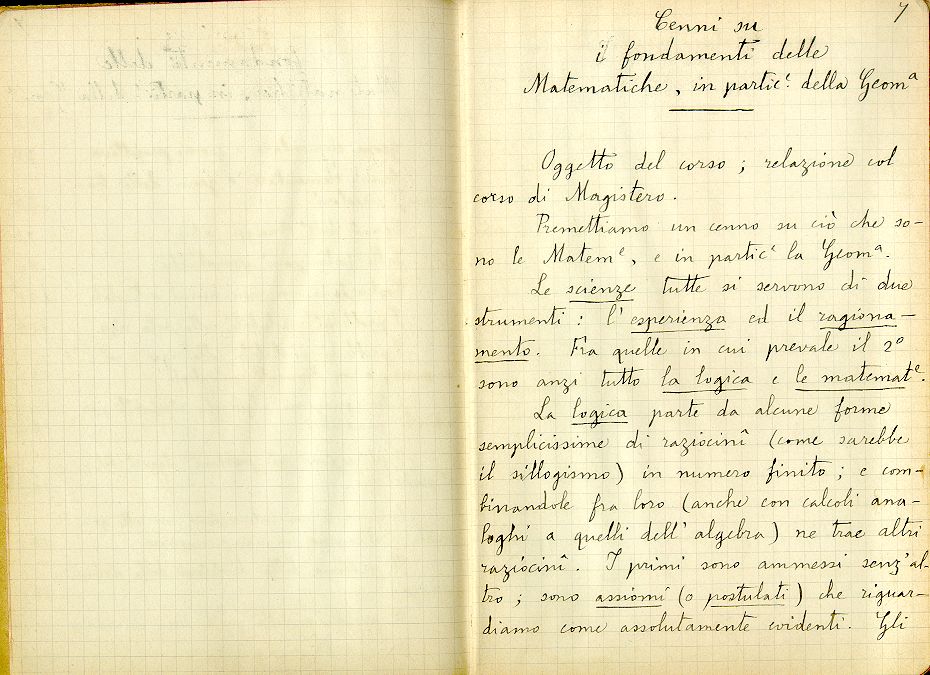 7
Cenni su
i fondamenti delle
Matematiche, in partic.ᵉ della Geomᵃ
Oggetto del corso; relazione col
corso di Magistero.
Premettiamo un cenno su ciò che so-
no le Matemᵉ, e in particᵉ la Geomᵃ.
Le scienze tutte si servono di due
strumenti: l'esperienza ed il ragiona-
mento. Fra quelle in cui prevale il 2º
sono anzi tutto la logica e le matematᵉ.
La logica parte da alcune forme
semplicissime di raziocinî (come sarebbe
il sillogismo) in numero finito; e com-
binandole fra loro (anche con calcoli ana-
loghi a quelli dell'algebra) ne trae altri
raziocinî. I primi sono ammessi senz'al-
tro; sono assiomi (o postulati) che riguar-
diamo come assolutamente evidenti. Gli